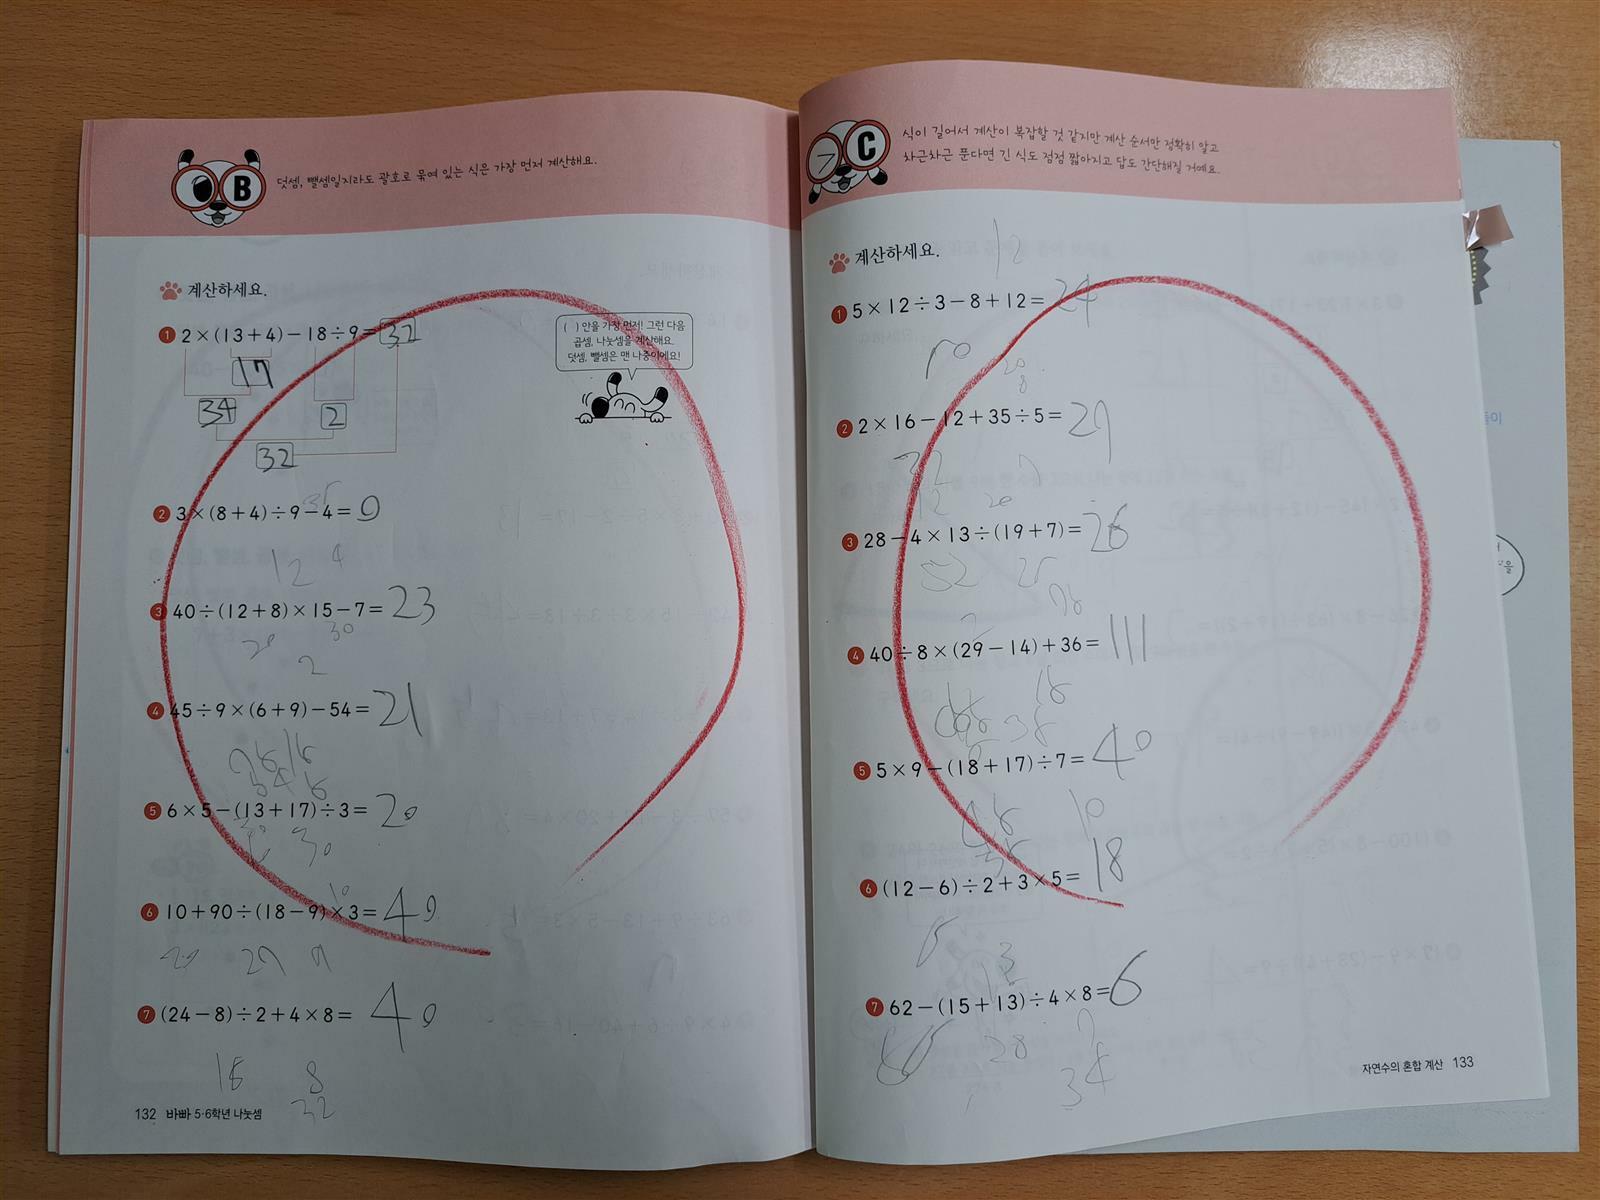 B
덧셈, 뺄셈일지라도 괄호로 묶여 있는 식은 가장 먼저 계산해요.
계산하세요.
1 2×(13+4)-18÷9=32
17
34 2
32
( ) 안을 가장 먼저! 그런 다음
곱셈, 나눗셈을 계산해요.
덧셈, 뺄셈은 맨 나중이에요!
2 3×(8+4)÷9-4=0
12 4
3 40÷(12+8)×15-7=23
20 30
2
4 45÷9×(6+9)-54=21
5 6×5-(13+17)÷3=20
30
6 10+90÷(18-9)×3=40
10
7 (24-8)÷2+4×8=40
16 8
32
132 바빠 5·6학년 나눗셈
C
식이 길어서 계산이 복잡할 것 같지만 계산 순서만 정확히 알고
차근차근 푼다면 긴 식도 점점 짧아지고 답도 간단해질 거예요.
계산하세요.
12
1 5×12÷3-8+12=24
20
8
2 2×16-12+35÷5=27
32
12 20
3 28-4×13÷(19+7)=26
52
4 40÷8×(29-14)+36=111
5 5×9-(18+17)÷7=40
6 (12-6)÷2+3×5=18
7 62-(15+13)÷4×8=6
28
자연수의 혼합 계산 133